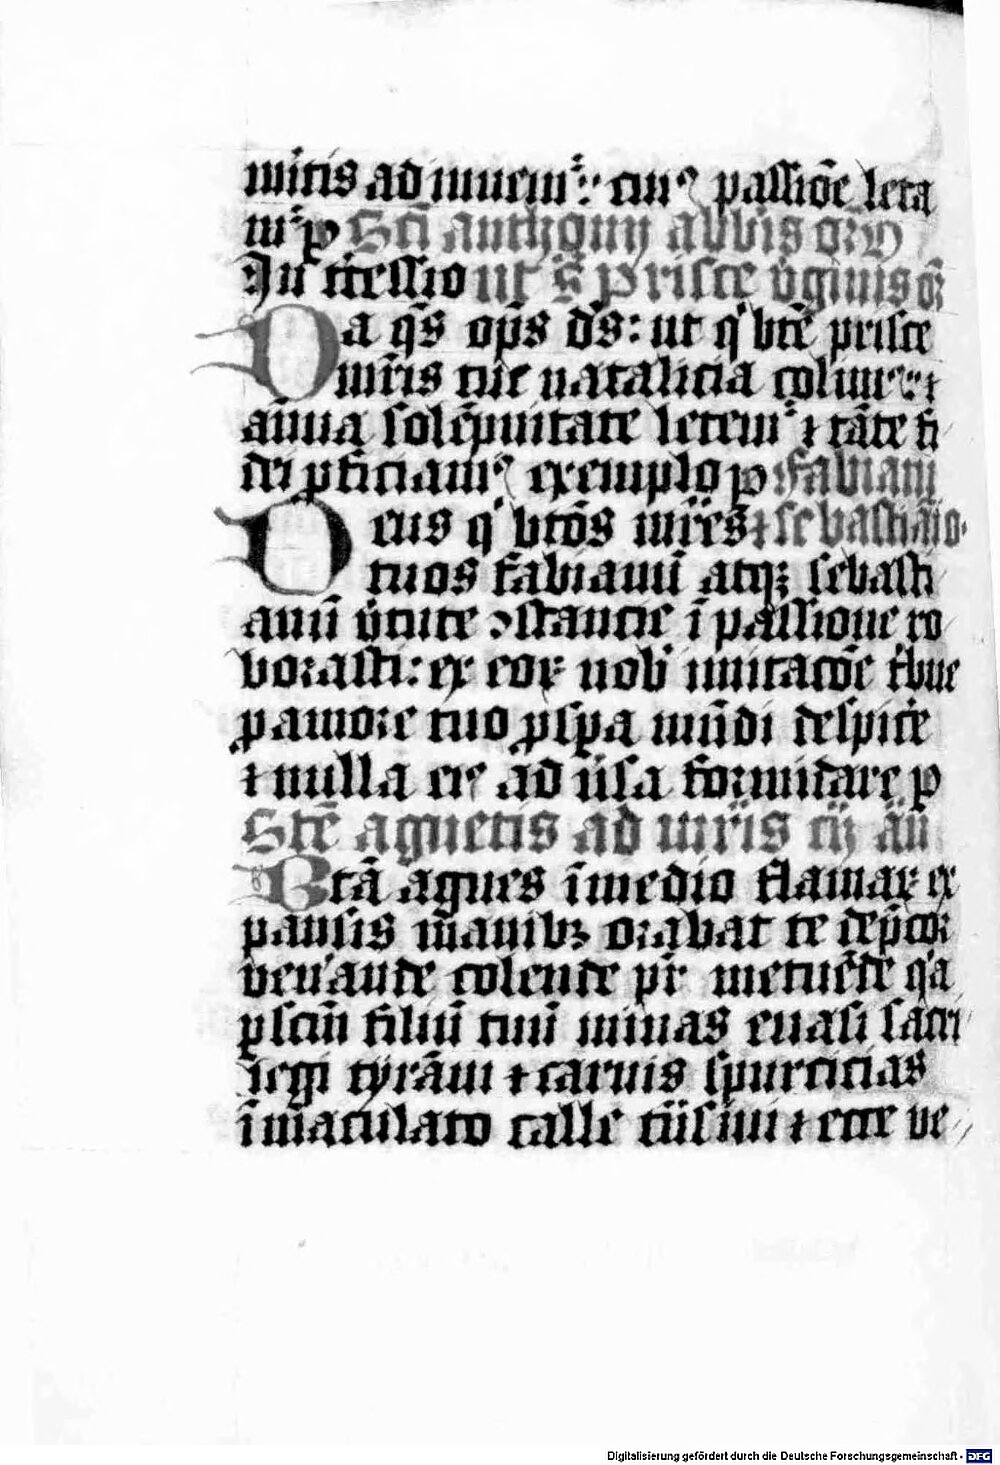 mitis ad inuem᷑: cui⁹ passiōe leta
m᷑ p Sc̄i anthonij abb̄is orō
Intercessio nr̄ S Prisce v̓ginis or̄
Da q̄s op̄s ds̄: ut q' btē prisce
mr̄is tue natalicia colim⁹: ⁊
ān̄ua solēpnitate letem᷑ ⁊ tāte fi
dei ꝓficiam⁹ exemplo p Fabiani
Deus q' btōs mr̄es ⁊ sebastiaīo
tuos fabianū atqꝫ sebasti
anū v̓tute ꝯstancie ī passione ro
borasti: ex eoꝝ nob̓ imitacōe t̓bue
p amore tuo ꝓspa mūdi despic̓e
⁊ nulla ei⁹ ad ūsa formidare p
Stē agnetis ad mr̄is iij añ
Btā agnes ī medio flāmaꝝ ex
pansis māibꝫ orabat te dep̄cor
ven̓ande colende pr̄ metuēde q'a
p scm̄ filiū tuū minas euasi sacri
legi tyrāni ⁊ carnis spurcicias
īmaculato calle tn̄siui ⁊ ecce ve
Digitalisierung gefördert durch die Deutsche Forschungsgemeinschaft - DFG